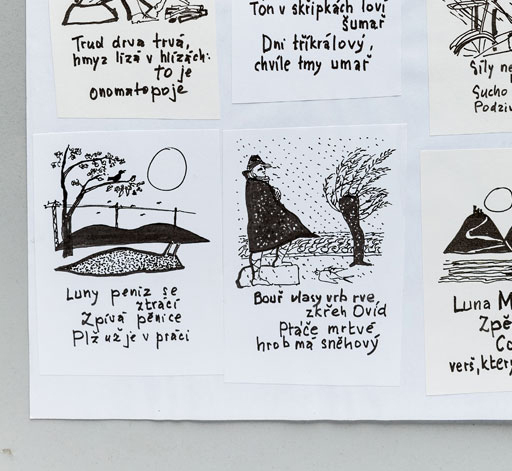 Trud drva trvá,
hmyz lízá v hlízách:
to je
onomatopoje
Tón v skřipkách loví
šumař
Dni tříkrálový,
chvíle tmy umař
Síly
Sucho
Podzi
Luny peníz se
ztrácí
Zpívá pěnice
Plž už je v práci
Bouř vlasy vrb rve,
zkřeh Ovíd
Ptáče mrtvé
hrob má sněhový
Luna M
Zpě
Co
verš, kter